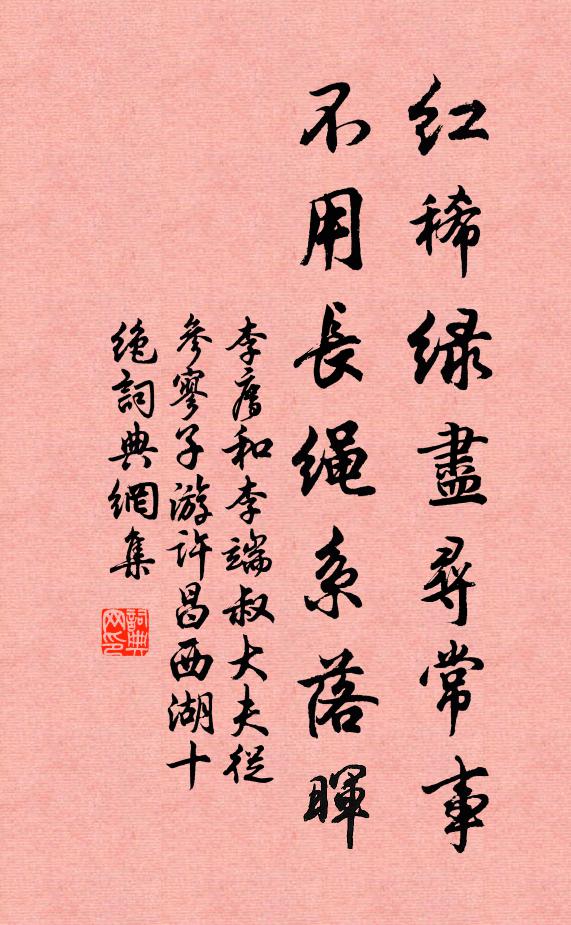 紅稀緑盡尋常事
不用長繩系落暉
李廌和李端叔大夫從
參寥子游許昌西湖十
絶詞典網集
詞典网印